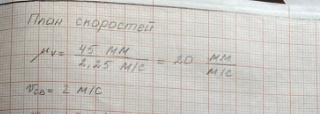 План скоростей
μv = 45 мм / 2,25 м/с = 20 мм / м/с
vCD = 2 м/с